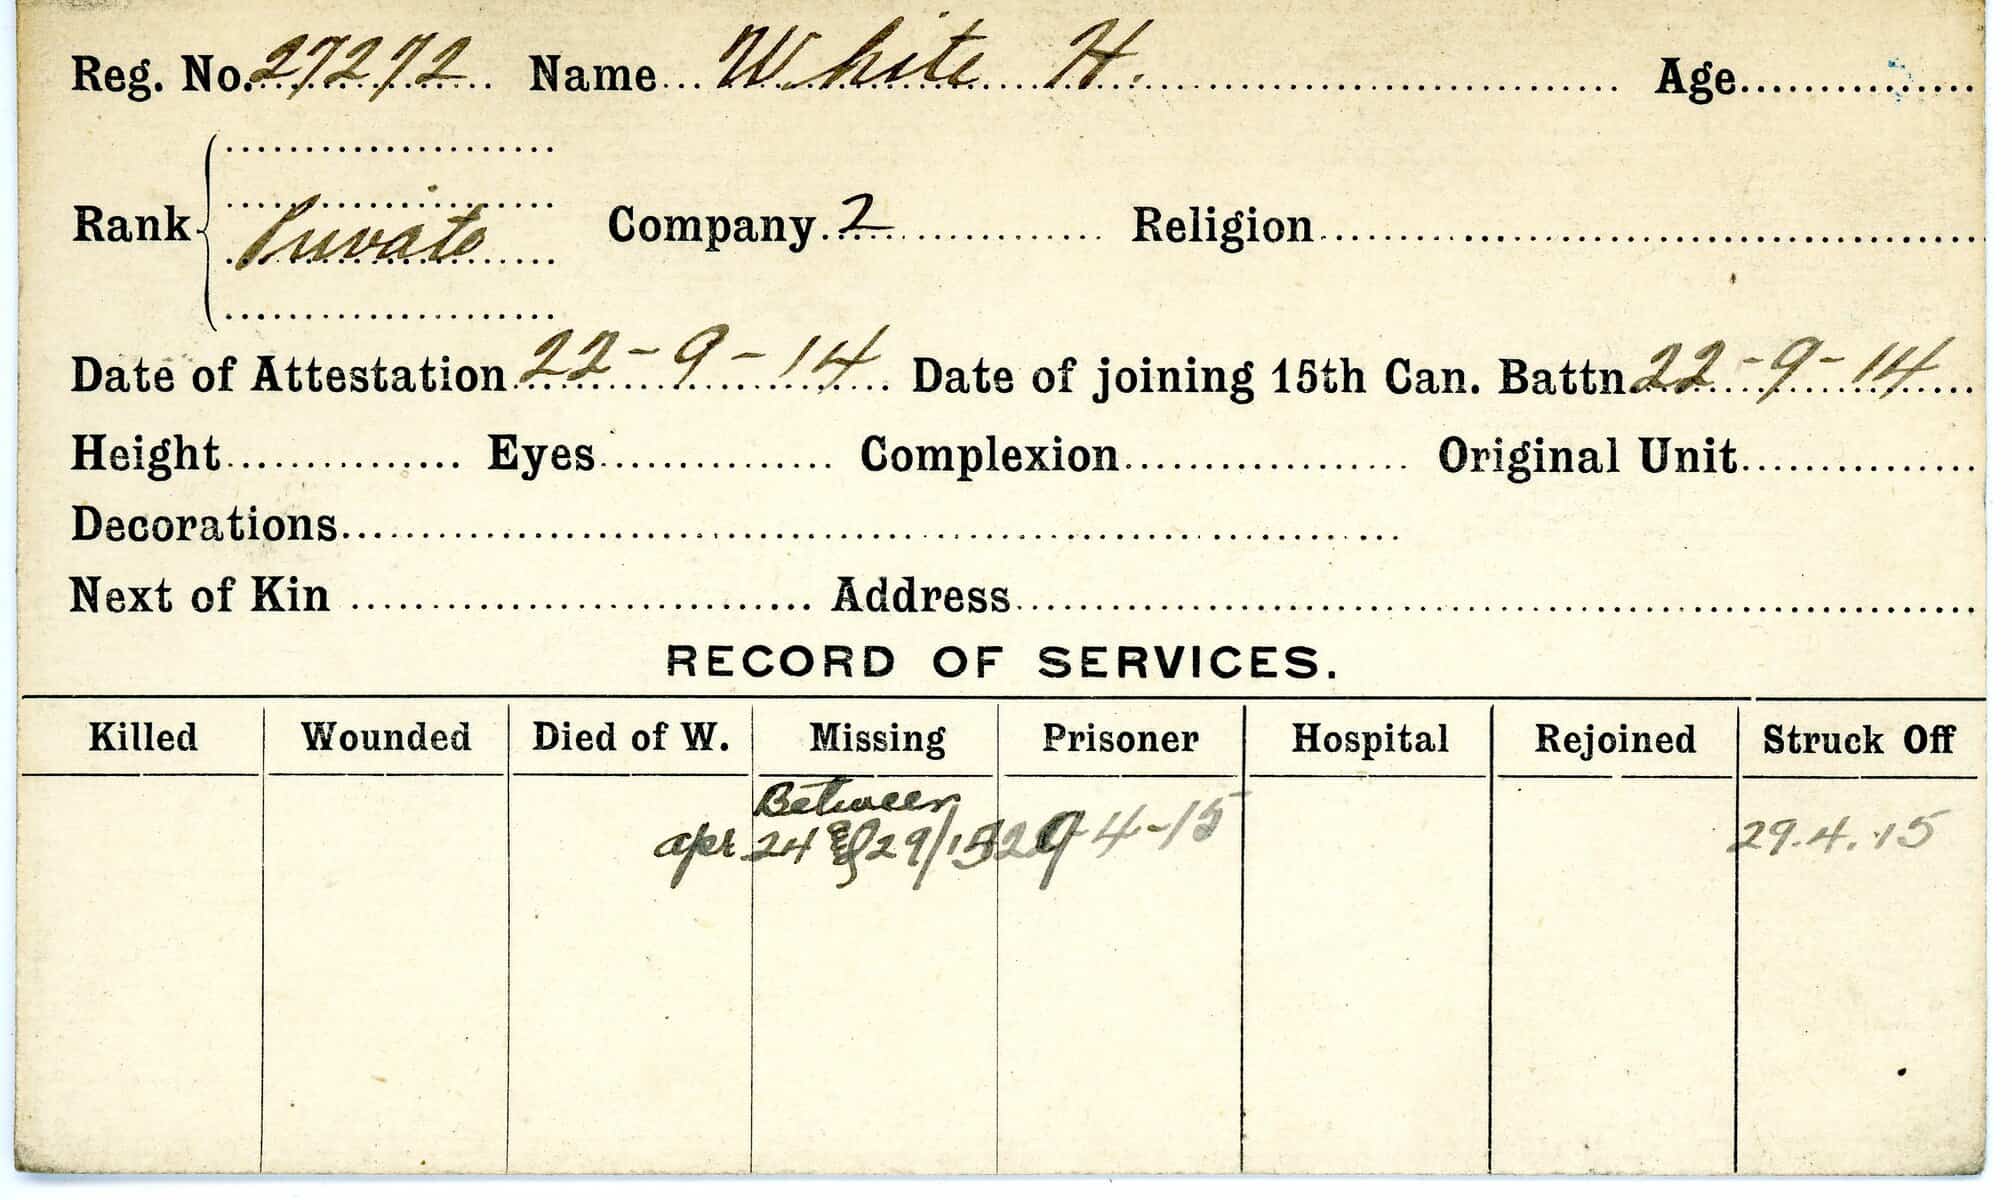 Reg. No. 27272 Name White H. Age
Rank Private Company 2 Religion
Date of Attestation 22-9-14 Date of joining 15th Can. Battn 22-9-14
Height Eyes Complexion Original Unit
Decorations
Next of Kin Address
RECORD OF SERVICES.
Killed Wounded Died of W. Missing Prisoner Hospital Rejoined Struck Off
Between
apr 24 & 29/15 29-4-15 29.4.15